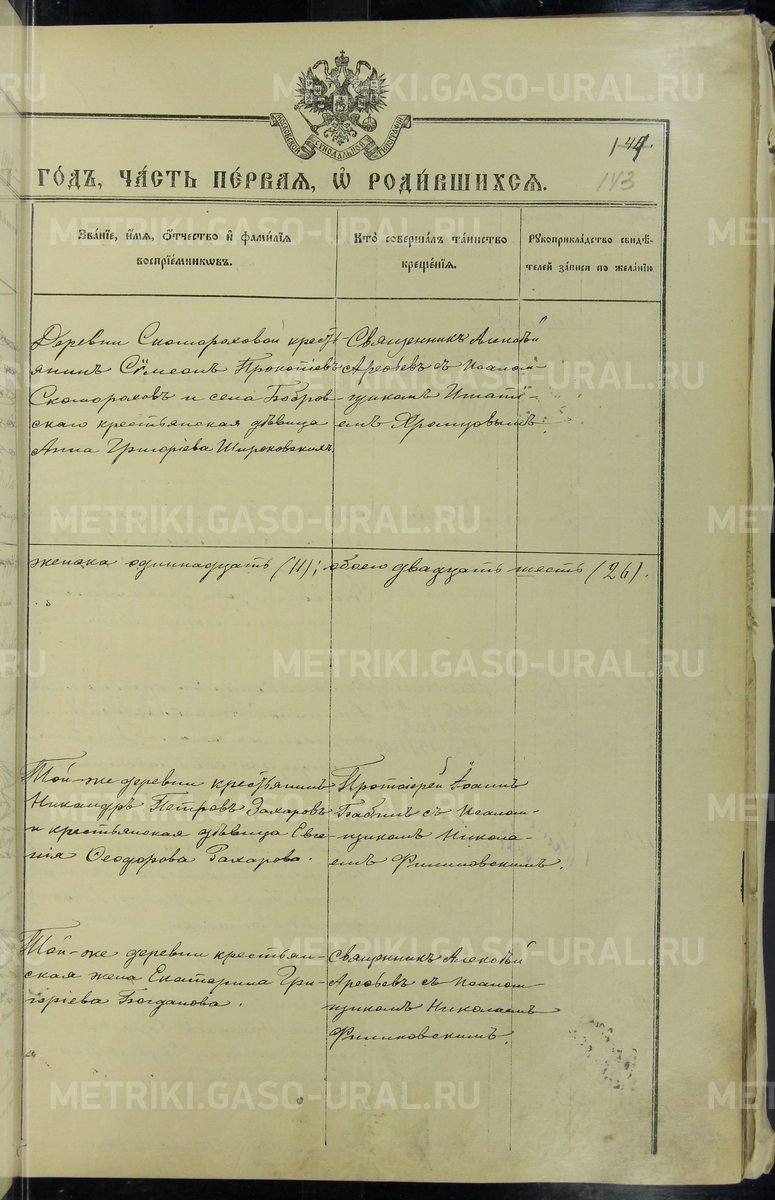 METRIKI.GASO-URAL.RU
МОСКОВСКОЙ СѴНОДАЛЬНОЙ ТИПОГРАФІИ
144.
143
ГО́ДЪ, ЧА́СТЬ ПЕ́РВАЯ, Ѡ РОДИ́ВШИХСѦ.
Зва́нїе, и́мѧ, ѻ́тчество и҆ фами́лїѧ
воспрїе́мникѡвъ.
Кто̀ соверша́лъ та́инство
креще́нїѧ.
Рꙋкоприкла́дство свидѣ́-
телей за́писи по жела́нїю
Деревни Скомороховой кресть-
янинъ Сѵмеонъ Прокопіевъ
Скомороховъ и села Бобров-
скаго крестьянская дѣвица
Анна Григоріева Широковскихъ.
Священникъ Алексѣй
Арефьевъ съ псалом-
щикомъ Ипаті-
емъ Хромцовымъ.
METRIKI.GASO-URAL.RU
женска одиннадцать (11); обоего двадцать шесть (26).
METRIKI.GASO-URAL.RU
Той-же деревни крестьянинъ
Никандръ Петровъ Захаровъ
и крестьянская дѣвица Евге-
нія Ѳеодорова Захарова.
Протоіерей Іоаннъ
Бабинъ съ псалом-
щикомъ Никола-
емъ Филиповскимъ.
Той-же деревни крестьян-
ская жена Екатерина Гри-
горіева Богданова.
Священникъ Алексѣй
Арефьевъ съ псалом-
щикомъ Николаемъ
Филиповскимъ.
METRIKI.GASO-URAL.RU